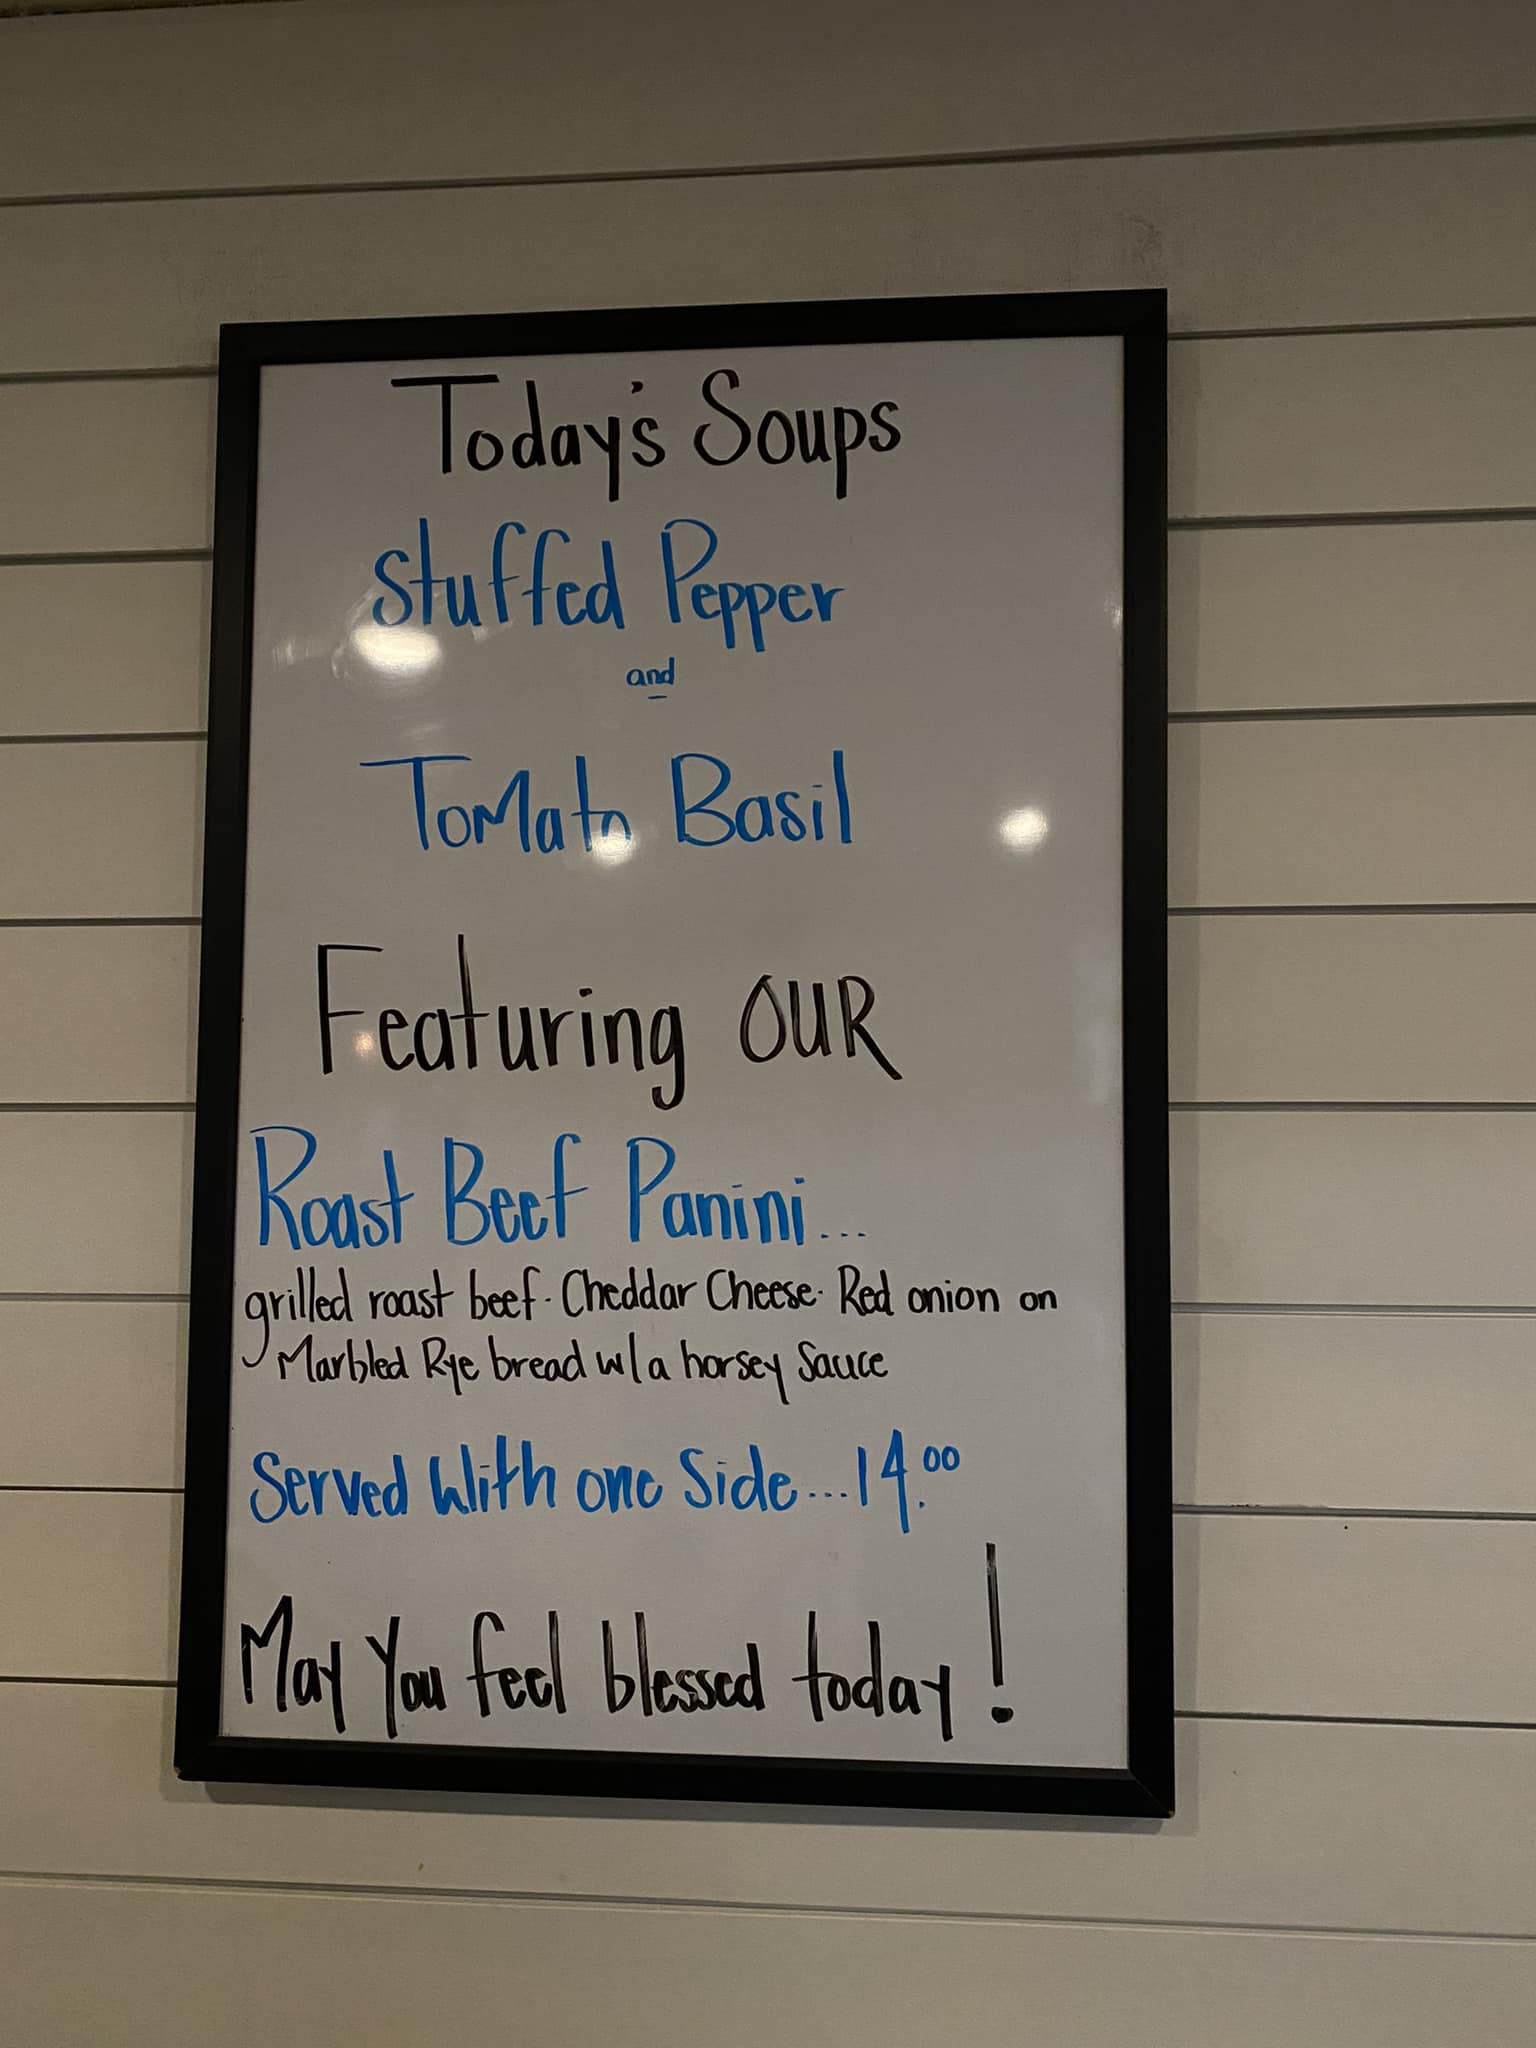 Today's Soups
Stuffed Pepper
and
Tomato Basil
Featuring OUR
Roast Beef Panini...
grilled roast beef · Cheddar Cheese · Red onion on
Marbled Rye bread w/a horsey Sauce
Served With one Side...14.00
May You feel blessed today!